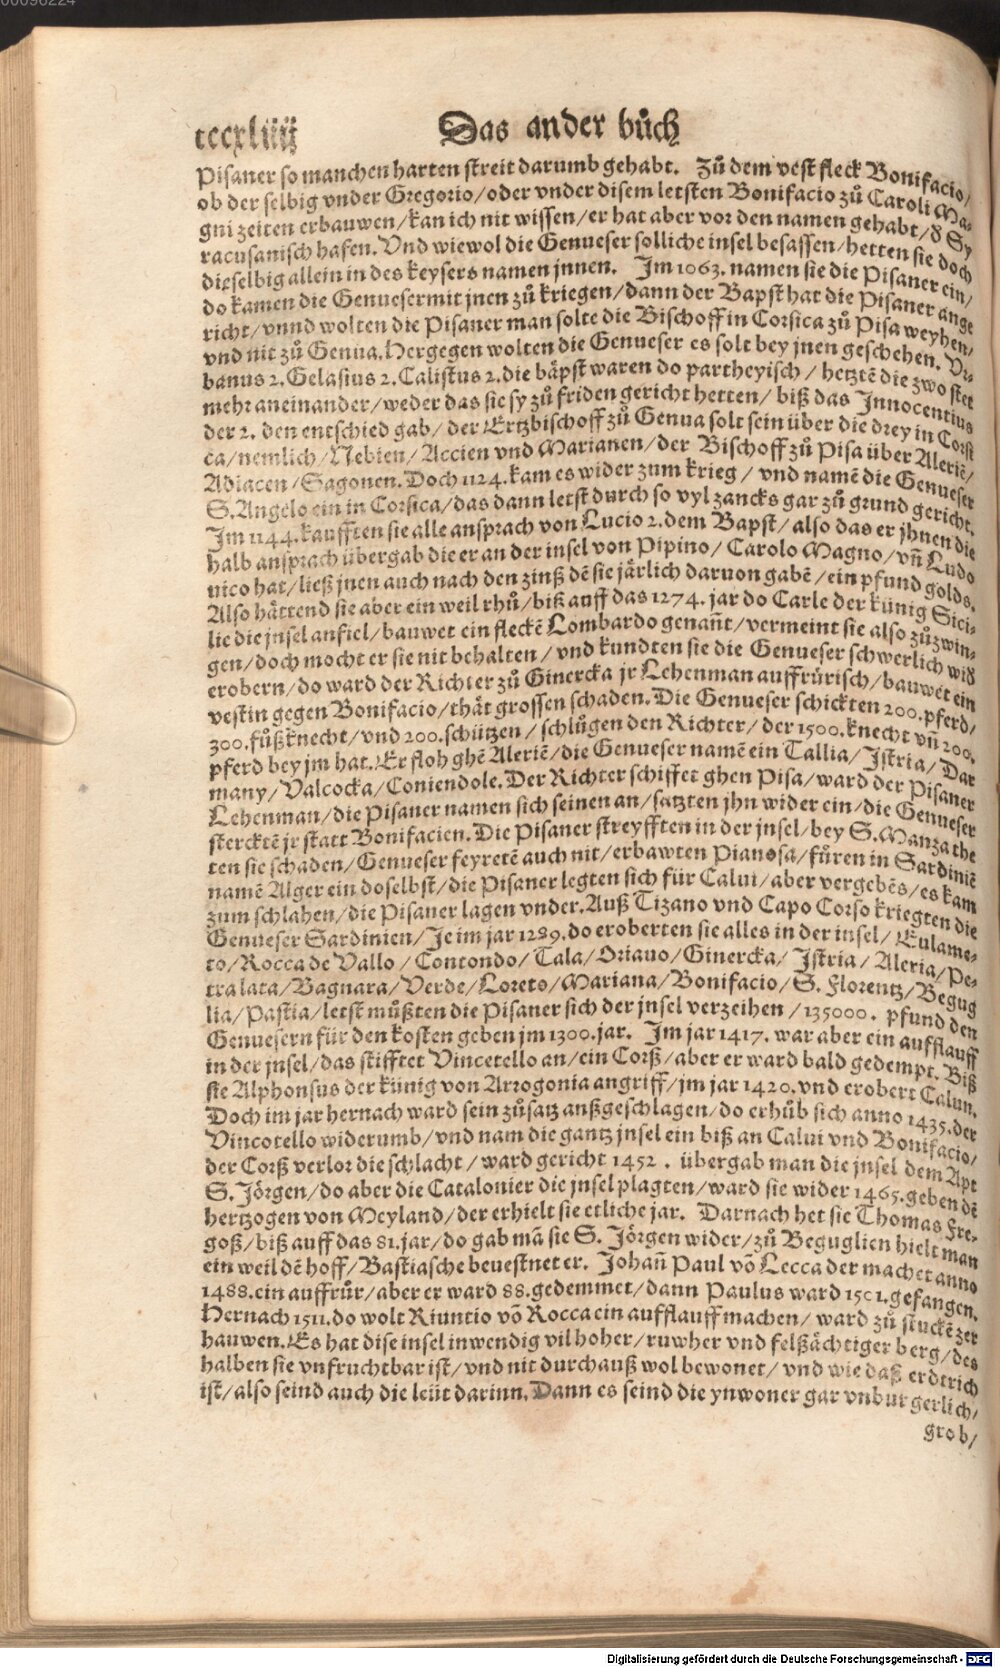 00096224
cccxliiij
Das ander bůch
Pisaner so manchen harten streit darumb gehabt. Zů dem vest fleck Bonifacio/
ob der selbig vnder Gregorio/oder vnder disem letsten Bonifacio zů Caroli Ma-
gni zeiten erbauwen/kan ich nit wissen/er hat aber vor den namen gehabt/ď Sy
racusanisch hafen. Vnd wiewol die Genueser solliche insel besassen/hetten sie doch
dieselbig allein in des keysers namen jnnen. Im 1063. namen sie die Pisaner ein/
do kamen die Genueser mit jnen zů kriegen/dann der Bapst hat die Pisaner ange
richt/vnnd wolten die Pisaner man solte die Bischoff in Corsica zů Pisa weyhen/
vnd nit zů Genua. Hergegen wolten die Genueser es solt bey jnen geschehen. Vr-
banus 2. Gelasius 2. Calistus 2. die bäpst waren do partheyisch/hetztē die zwo stet
mehr aneinander/weder das sie sy zů friden gericht hetten/biß das Innocentius
der 2. den entschied gab/der Ertzbischoff zů Genua solt sein über die drey in Corsi
ca/nemlich/Nebien/Accien vnd Marianen/der Bischoff zů Pisa über Aleriē/
Adiacen/Sagonen. Doch 1124. kam es wider zum krieg/vnd namē die Genueser
S. Angelo ein in Corsica/das dann letst durch so vyl zancks gar zů grund gericht.
Im 1144. kaufften sie alle ansprach von Lucio 2. dem Bapst/also das er jhnen die
halb ansprach übergab die er an der insel von Pipino/Carolo Magno/vñ Ludo
nico hat/ließ jnen auch nach den zinß dē sie järlich daruon gabē/ein pfund golds.
Also hättend sie aber ein weil rhů/biß auff das 1274. jar do Carle der künig Sici-
lie die jnsel anfiel/bauwet ein fleckē Lombardo genañt/vermeint sie also zůzwin-
gen/doch mocht er sie nit behalten/vnd kundten sie die Genueser schwerlich wiď
erobern/do ward der Richter zů Ginercka jr Lehenman auffrürisch/bauwet ein
vestin gegen Bonifacio/thät grossen schaden. Die Genueser schickten 200. pferd/
300. fůßknecht/vnd 200. schützen/schlůgen den Richter/der 1500. knecht vñ 200.
pferd bey jm hat. Er floh ghē Aleriē/die Genueser namē ein Tallia/Istria/Dar
many/Valcocka/Coniendole. Der Richter schiffet ghen Pisa/ward der Pisaner
Lehenman/die Pisaner namen sich seinen an/satzten jhn wider ein/die Genueser
stercktē jr statt Bonifacien. Die Pisaner streyfften in der jnsel/bey S. Manza the
ten sie schaden/Genueser feyretē auch nit/erbawten Pianosa/fůren in Sardiniē
namē Alger ein doselbst/die Pisaner legten sich für Calui/aber vergebēs/es kam
zum schlahen/die Pisaner lagen vnder. Auß Tizano vnd Capo Corso kriegten die
Genueser Sardinien/Je im jar 1289. do eroberten sie alles in der insel/Eulame-
to/Rocca de Vallo/Contondo/Tala/Oriauo/Ginercka/Istria/Aleria/Pe-
tralata/Bagnara/Verde/Loreto/Mariana/Bonifacio/S. Florentz/Begug
lia/Pastia/letst můßten die Pisaner sich der jnsel verzeihen/135000. pfund den
Genuesern für den kosten geben jm 1300. jar. Im jar 1417. war aber ein aufflauff
in der jnsel/das stifftet Vincetello an/ein Corß/aber er ward bald gedempt. Biß
sie Alphonsus der künig von Arrogonia angriff/jm jar 1420. vnd erobert Caluu.
Doch im jar hernach ward sein zůsatz außgeschlagen/do erhůb sich anno 1435. der
Vincotello widerumb/vnd nam die gantz jnsel ein biß an Calui vnd Bonifacio/
der Corß verlor die schlacht/ward gericht 1452. übergab man die jnsel dem Apt
S. Jörgen/do aber die Catalonier die jnsel plagten/ward sie wider 1465. geben dē
hertzogen von Meyland/der erhielt sie etliche jar. Darnach het sie Thomas Fre-
goß/biß auff das 81. jar/do gab mā sie S. Jörgen wider/zů Beguglien hielt man
ein weil dē hoff/Bastia sche beuestnet er. Johañ Paul vō Lecca der machet anno
1488. ein auffrůr/aber er ward 88. gedemmet/dann Paulus ward 1501. gefangen.
Hernach 1511. do wolt Riuntio vō Rocca ein aufflauff machen/ward zů stuckē zer
hauwen. Es hat dise insel inwendig vil hoher/ruwher vnd felßächtiger berg/des
halben sie vnfruchtbar ist/vnd nit durchauß wol bewonet/vnd wie daß erdtrich
ist/also seind auch die leüt darinn. Dann es seind die ynwoner gar vnburgerlich/
grob/
Digitalisierung gefördert durch die Deutsche Forschungsgemeinschaft - DFG